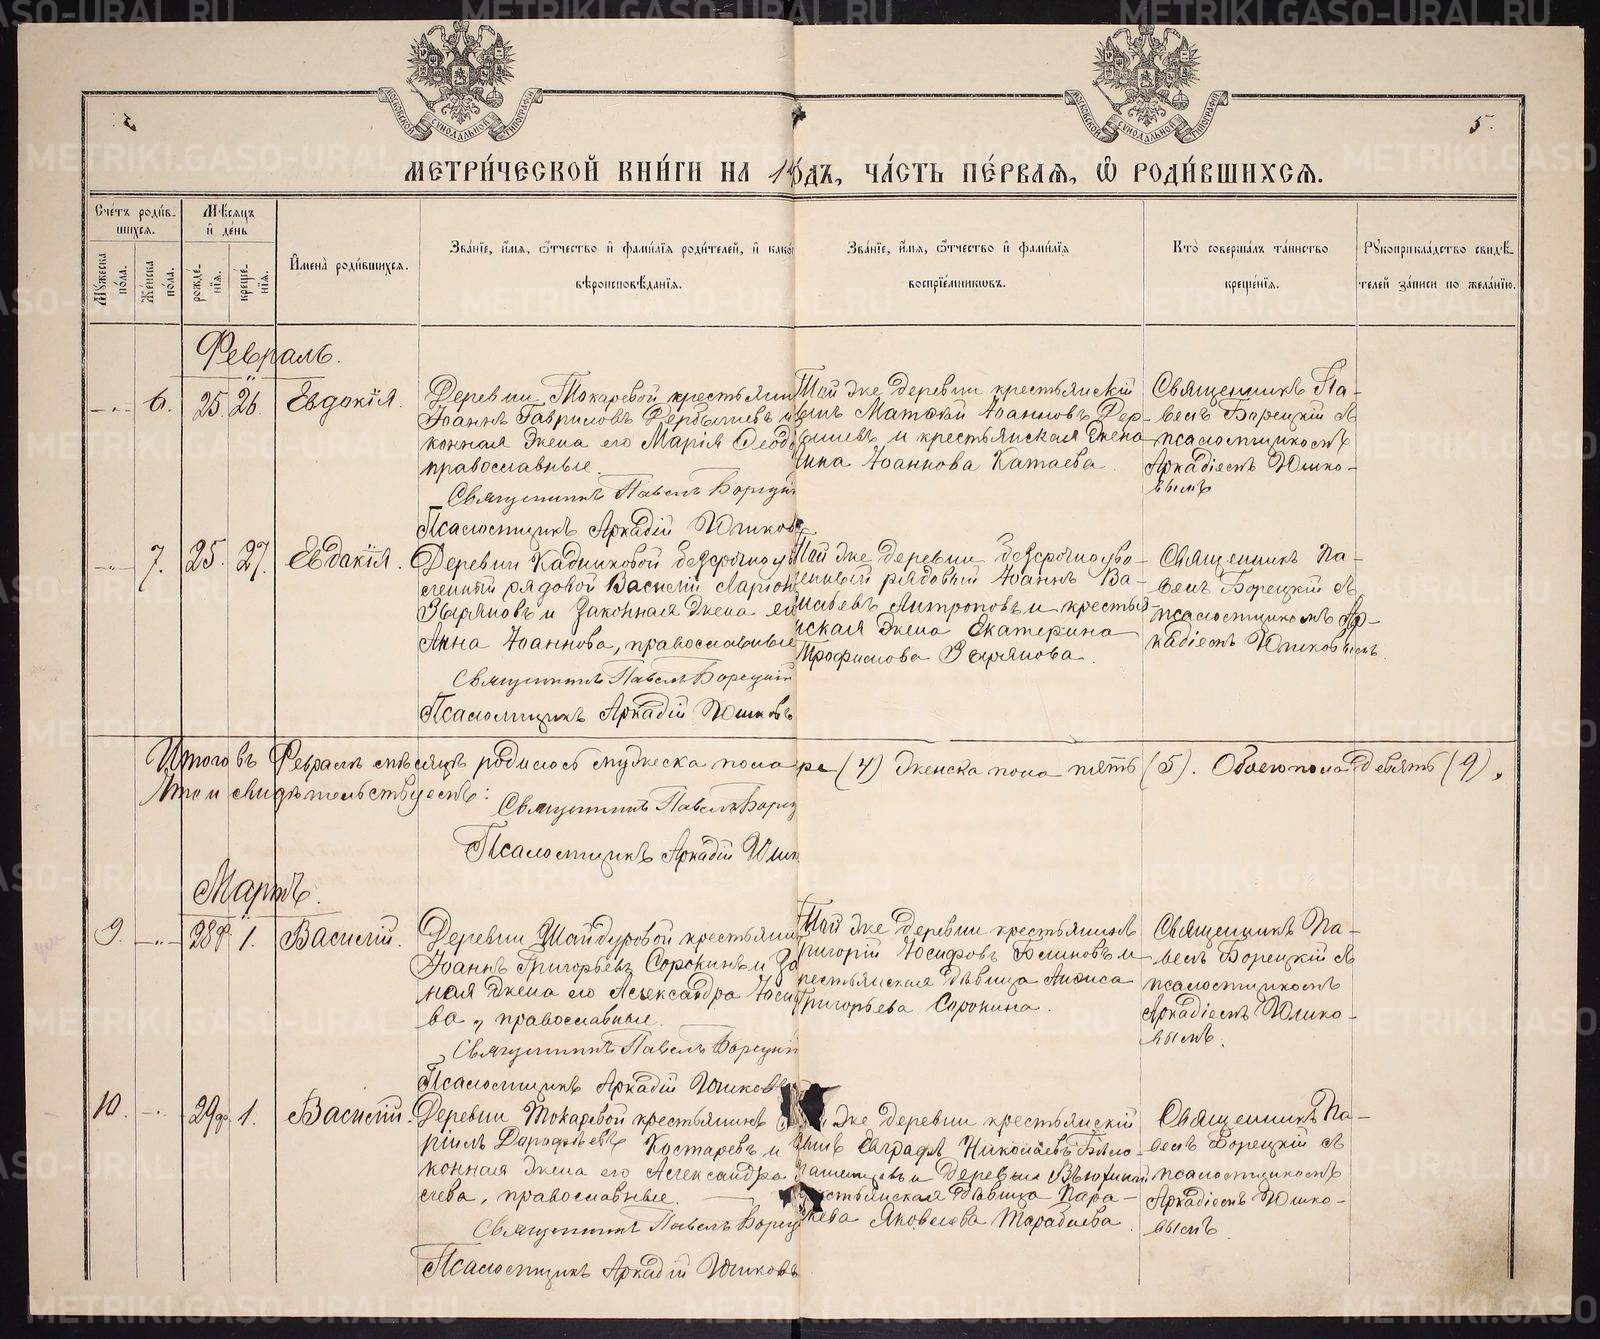 5.
МЕТРИ́ЧЕСКОЙ КНИ́ГИ НА 1 ГО́ДЪ, ЧА́СТЬ ПЕ́РВАѦ, Ѡ РОДИ́ВШИХСѦ.
Сче́тъ роди́в-
шихсѧ.
Мѣ́сѧцъ
и де́нь
Имена̀ роди́вшихсѧ.
Зва́нїе, и́мѧ, ѻ́тчество и фами́лїѧ роди́телей, и како́
вѣроисповѣ́данїѧ.
Зва́нїе, и́мѧ, ѻ́тчество и фами́лїѧ
воспрїе́мниковъ.
Кто̀ соверша́лъ та́инство
креще́нїѧ.
Рꙋкоприкла́дство свидѣ́-
телей за́писи по жела́нїю.
Мꙋ́жеска по́ла.
Же́нска по́ла.
рожде́нїѧ.
креще́нїѧ.
Февраль.
6. 25. 26. Евдокія.
Деревни Токаревой крестьянин
Іоаннъ Гавриловъ Дербышевъ и
конная жена его Марія Ѳеод
православные.
Священникъ Павелъ Борецкій
Псаломщикъ Аркадій Юшков
Той же деревни крестьянскій
сынъ Матѳій Іоанновъ Дер-
бышевъ и крестьянская жена
Іоаннова Катаева.
Священникъ Па-
велъ Борецкій съ
псаломщикомъ
Аркадіемъ Юшко-
вымъ
7. 25. 27. Евдакія.
Деревни Кадниковой безсрочноув
ленный рядовой Василій Ларіон
Зыряновъ и законная жена ег
Анна Іоаннова, православные
Священникъ Павелъ Борецкій
Псаломщикъ Аркадій Юшковъ
Той же деревни безсрочноуво-
ленный рядовый Іоаннъ Ва-
сильевъ Антроповъ и крестья-
нская жена Екатерина
Трофимова Зырянова.
Священникъ Па-
велъ Борецкій съ
псаломщикомъ Ар-
кадіемъ Юшковымъ.
Итого въ Февралѣ мѣсяцѣ родилось мужеска пола ре (4) женска пола пять (5). Обоего пола девять (9).
Въ томъ свидѣтельствуемъ:
Священникъ Павелъ Борец
Псаломщикъ Аркадій Юшк
Мартъ.
9. 28ф. 1. Василій.
Деревни Шайдуровой крестьянин
Іоаннъ Григорьевъ Сорокинъ и за
ная жена его Александра Іоси
ва, православные.
Священникъ Павелъ Борецкій
Псаломщикъ Аркадій Юшковъ
Той же деревни крестьянинъ
Григорій Іосифовъ Блиновъ и
крестьянская дѣвица Аниса
Григорьева Сорокина.
Священникъ Па-
велъ Борецкій съ
псаломщикомъ
Аркадіемъ Юшко-
вымъ.
10. 29ф. 1. Василій.
Деревни Токаревой крестьянинъ
рилъ Дороѳеевъ Костаревъ и
конная жена его Александра
сева, православные.
Священникъ Павелъ Борец
Псаломщикъ Аркадій Юшковъ
же деревни крестьянскій
сынъ Евграфъ Николаевъ Бѣло-
и деревни
крестьянская дѣвица Пара-
скева Яковлева
Священникъ Па-
велъ Борецкій съ
псаломщикомъ
Аркадіемъ Юшко-
вымъ.
METRIKI.GASO-URAL.RU